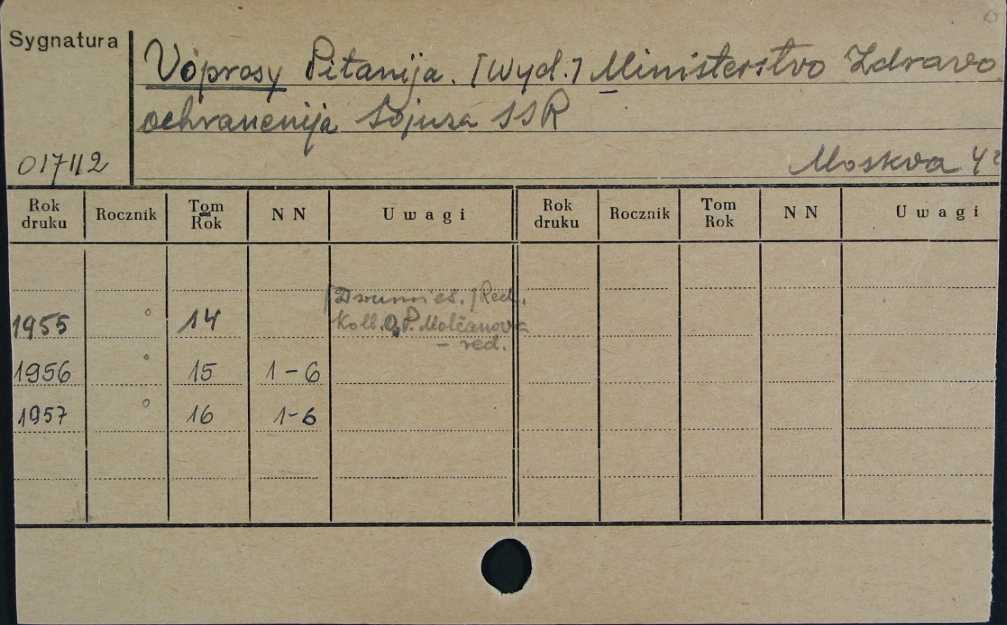 Sygnatura
Voprosy Pitanija. [Wyd.] Ministerstvo Zdravo
ochranenija Sojuza SSR
017112
Moskva 4°
Rok druku Rocznik Tom Rok N N Uwagi Rok druku Rocznik Tom Rok N N Uwagi
[Dwumies.] Red.
1955 ° 14 Koll. O.P. Molčanova
– red.
1956 ° 15 1–6
1957 ° 16 1–6